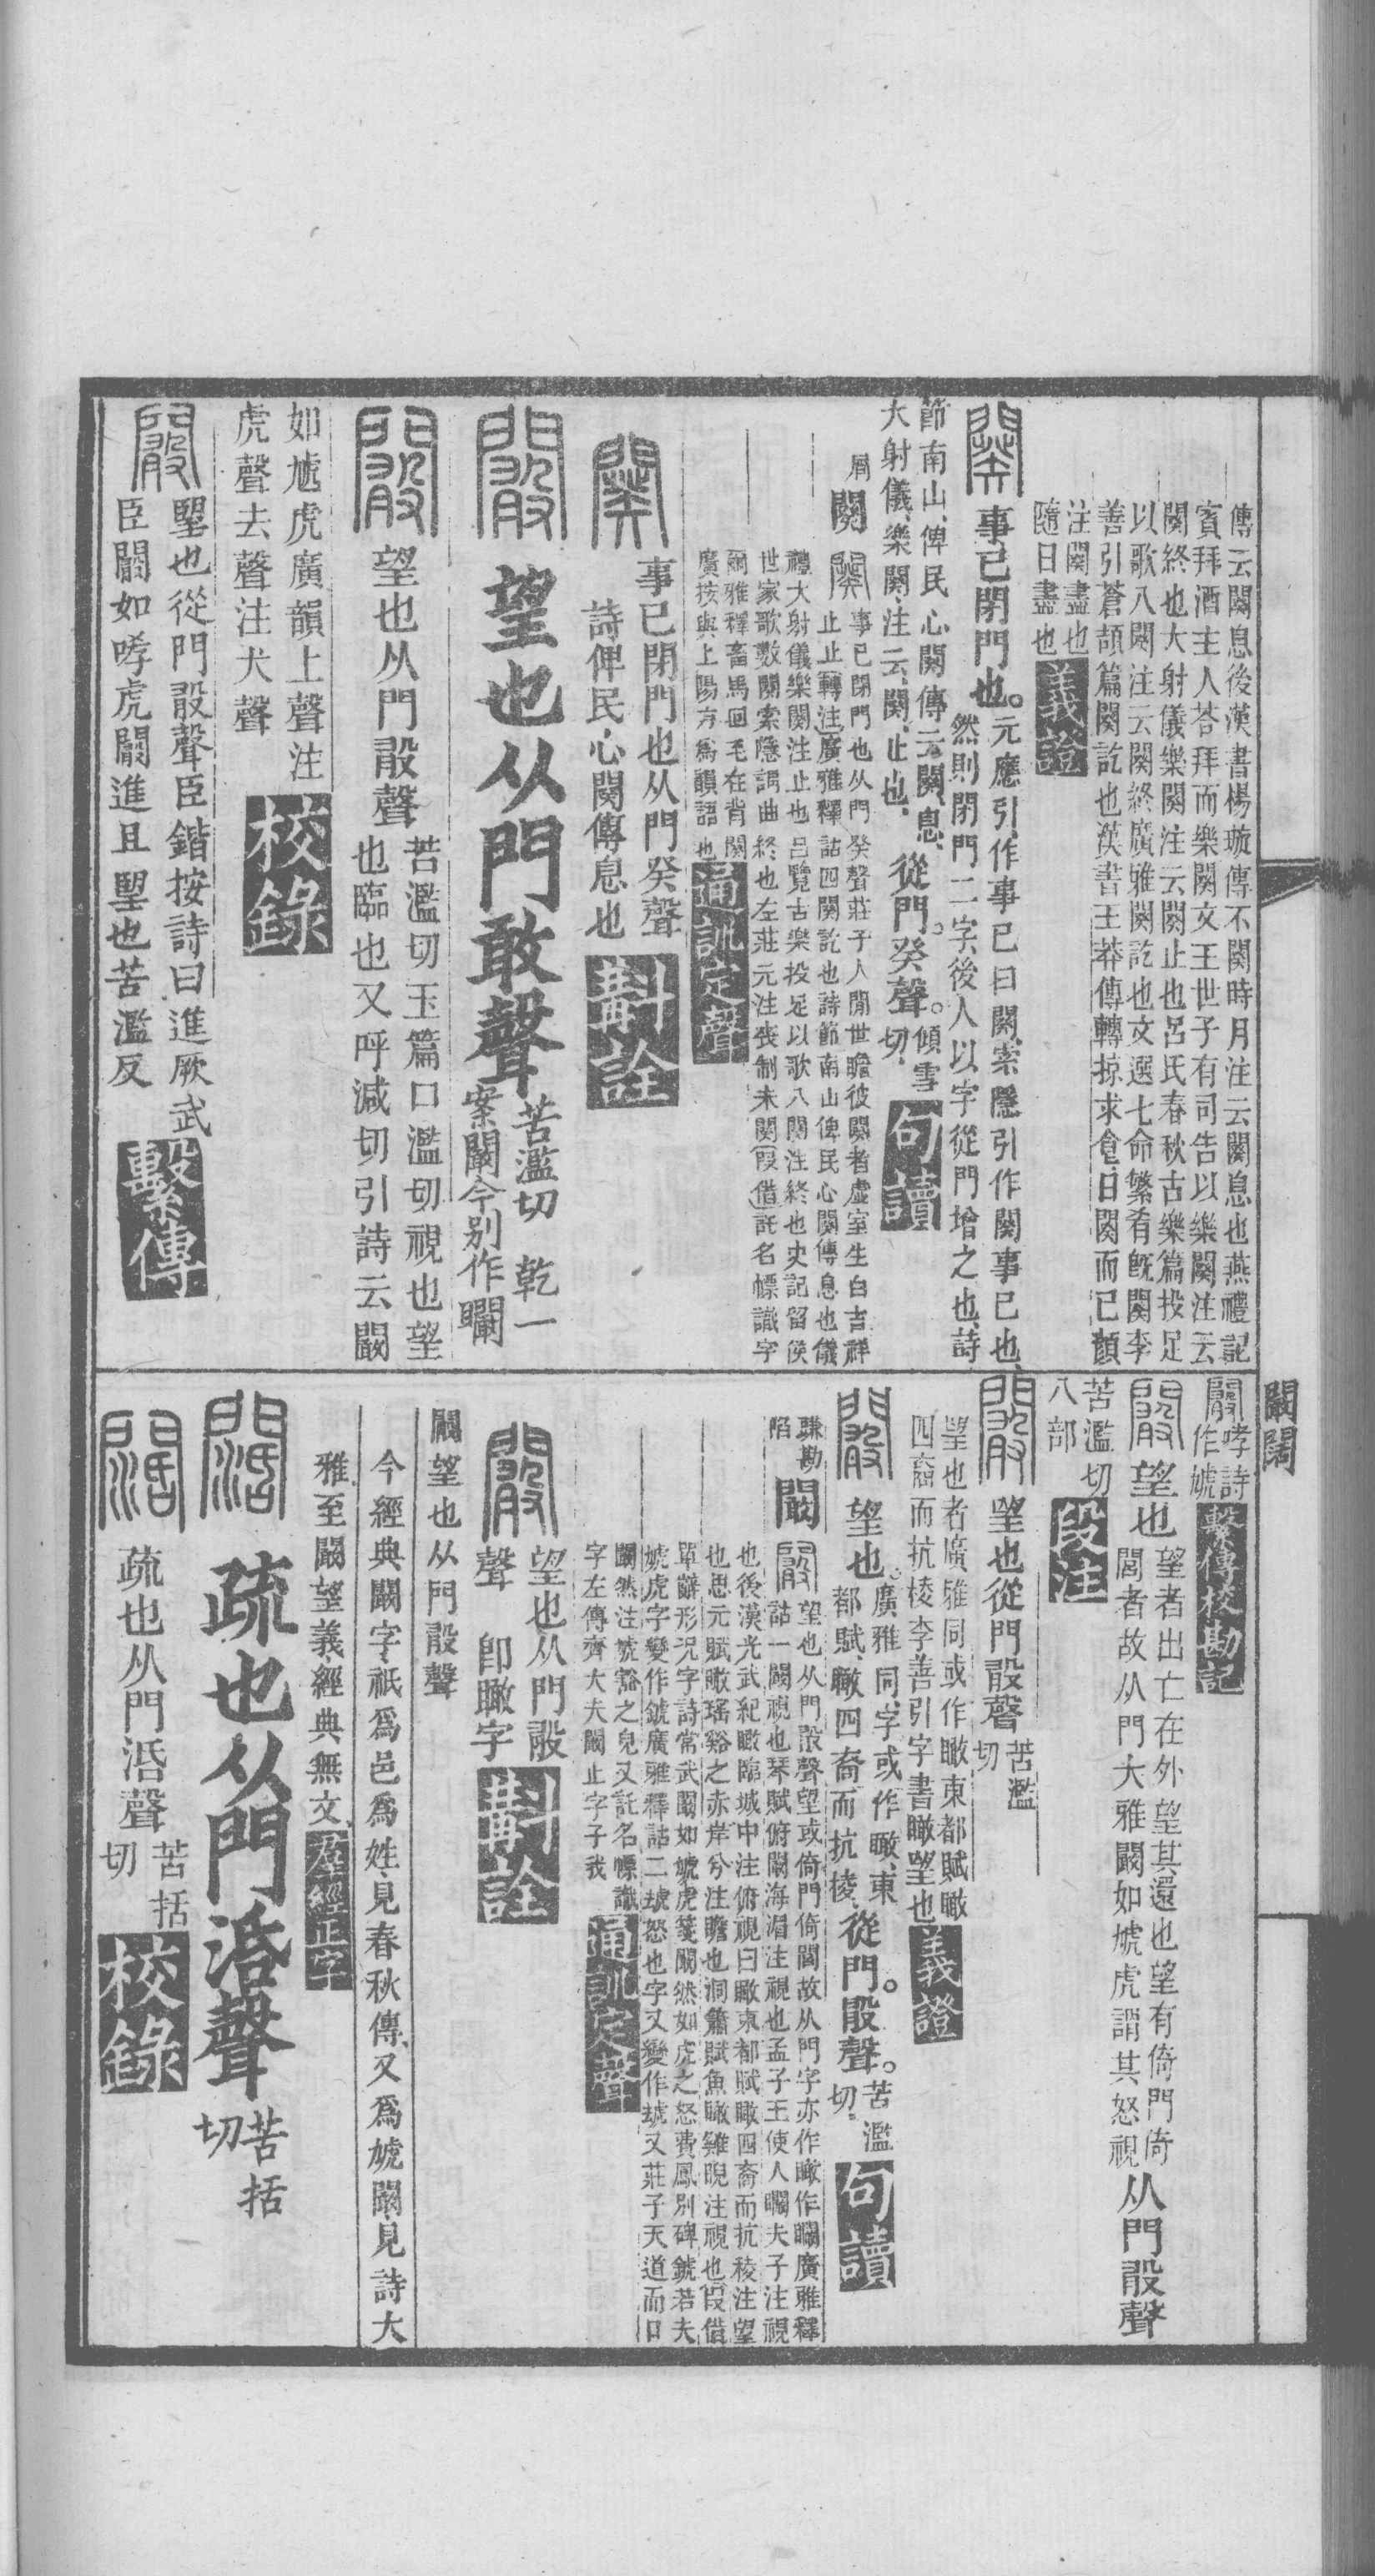 傳云闋息後漢書楊璇傳不闋時月注云闋息也燕禮記
賓拜酒主人荅拜而樂闋文王世子有司告以樂闋注云
闋終也大射儀樂闋注云闋止也呂氏春秋古樂篇投足
以歌八闋注云闋終廣雅闋訖也文選七命繁肴既闋李
善引蒼頡篇闋訖也漢書王莽傳轉掠求食日闋而已顏
注闋盡也
隨日盡也義證
事已閉門也。元應引作事已曰闋索隱引作闋事已也、
然則閉門二字後人以字從門增之也、詩
節南山、俾民心闋傳云闋、息、
大射儀、樂闋、注云、闋、止也、從門。癸聲。傾雪
切、句讀
屑闋事已閉門也从門癸聲莊子人閒世瞻彼闋者虛室生白吉祥
止止轉注廣雅釋詁四闋訖也詩節南山俾民心闋傳息也儀
禮大射儀樂闋注止也呂覽古樂投足以歌八闋注終也史記留侯
世家歌數闋索隱謂曲終也左莊元注喪制未闋叚借託名幖識字
爾雅釋畜馬回毛在背闋
廣按與上陽方爲韻語也通訓定聲
事已閉門也从門癸聲
詩俾民心闋傳息也斠詮
望也从門敢聲苦濫切 乾一
案闞今别作矙
望也从門㪉聲苦濫切玉篇口濫切視也望
也臨也又呼減切引詩云闞
如虓虎廣韻上聲注
虎聲去聲注犬聲校錄
朢也從門㪉聲臣鍇按詩曰進厥武
臣闞如哮虎闞進且朢也苦濫反繫傳
闞闊
哮詩
作虓繫傳校勘記
望也望者出亡在外望其還也望有倚門倚
閭者故从門大雅闞如虓虎謂其怒視从門㪉聲
苦濫切
八部段注
望也從門㪉聲苦濫
切
望也者廣雅同或作瞰東都賦瞰
四裔而抗棱李善引字書瞰望也義證
望也。廣雅同、字或作瞰、東
都賦、瞰四裔而抗棱、從門。㪉聲。苦濫
切、句讀
謙勘
陷闞望也从門㪉聲望或倚門倚閭故从門字亦作瞰作矙廣雅釋
詁一闞視也琴賦俯闞海湄注視也孟子王使人矙夫子注視
也後漢光武紀瞰臨城中注俯視曰瞰東都賦瞰四裔而抗稜注望
也思元賦瞰瑤谿之赤岸兮注瞻也洞簫賦魚瞰雞睨注視也叚借
單辭形況字詩常武闞如虓虎箋闞然如虎之怒費鳳别碑虓若夫
虓虎字變作虓廣雅釋詁二㺒怒也字又變作㺒又莊子天道而口
闞然注虓豁之皃又託名幖識
字左傳齊大夫闞止字子我通訓定聲
望也从門㪉
聲 卽瞰字斠詮
闞望也从門㪉聲
今經典闞字、祇爲邑爲姓、見春秋傳、又爲虓闞、見詩大
雅、至闞望義、經典無文、羣經正字
疏也从門活聲苦括
切
疏也从門𣴠聲苦括
切校錄